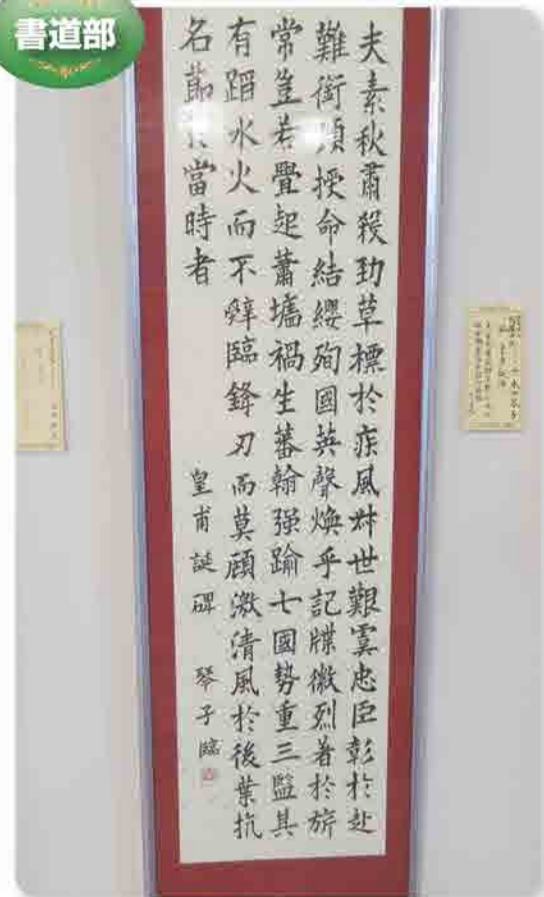 書道部
夫素秋肅殺勁草標於疾風叔世艱虞忠臣彰於赴
難銜須授命結纓殉國英聲煥乎記牒徽烈著於旂
常豈若疊起蕭墻禍生蕃翰强踰七國勢重三監其
有蹈水火而不辭臨鋒刃而莫顧激清風於後葉抗
名節於當時者
皇甫誕碑 琴子臨